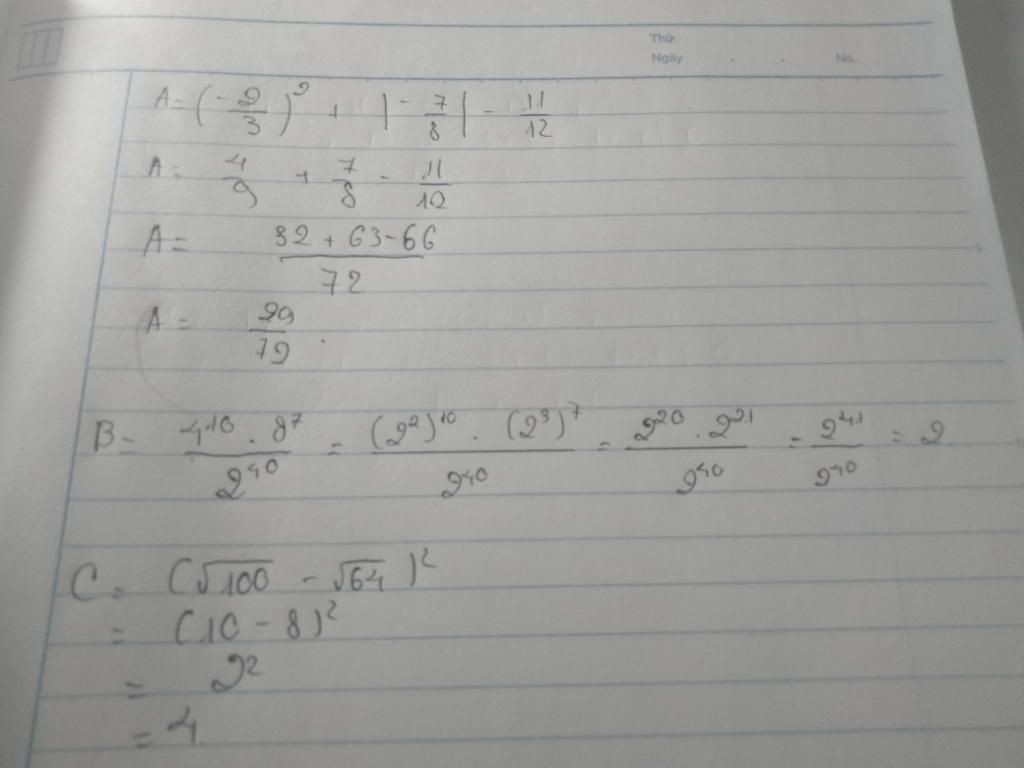 Thứ
Ngày . . No.
A = (-2/3)² + |-7/8| - 11/12
A = 4/9 + 7/8 - 11/12
A = (32 + 63 - 66)/72
A = 29/72.
B = (4¹⁰ . 8⁷)/2⁴⁰ = ((2²)¹⁰ . (2³)⁷)/2⁴⁰ = (2²⁰ . 2²¹)/2⁴⁰ = 2⁴¹/2⁴⁰ = 2
C = (√100 - √64)²
= (10 - 8)²
= 2²
= 4